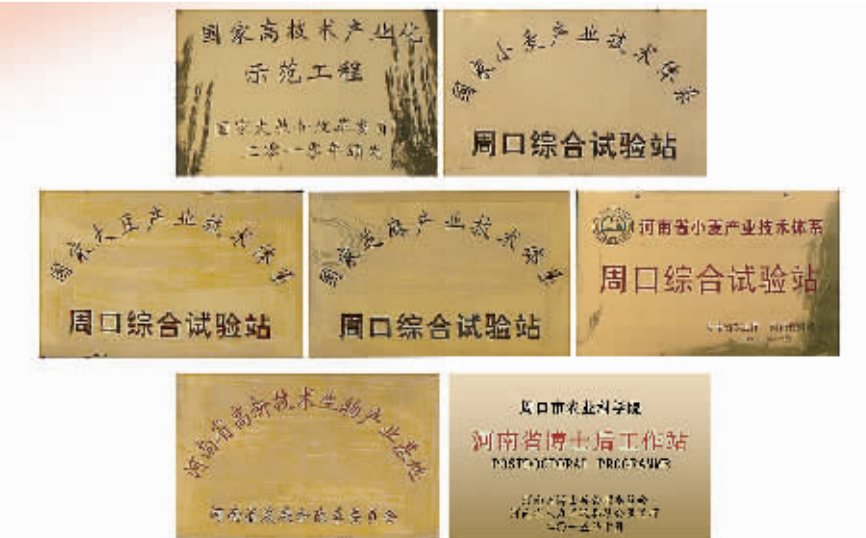 国家高技术产业化
示范工程
国家小麦产业技术体系
周口综合试验站
国家大豆产业技术体系
周口综合试验站
国家芝麻产业技术体系
周口综合试验站
河南省小麦产业技术体系
周口综合试验站
河南省高新技术生物产业基地
周口市农业科学院
河南省博士后工作站
POSTDOCTORAL PROGRAMME